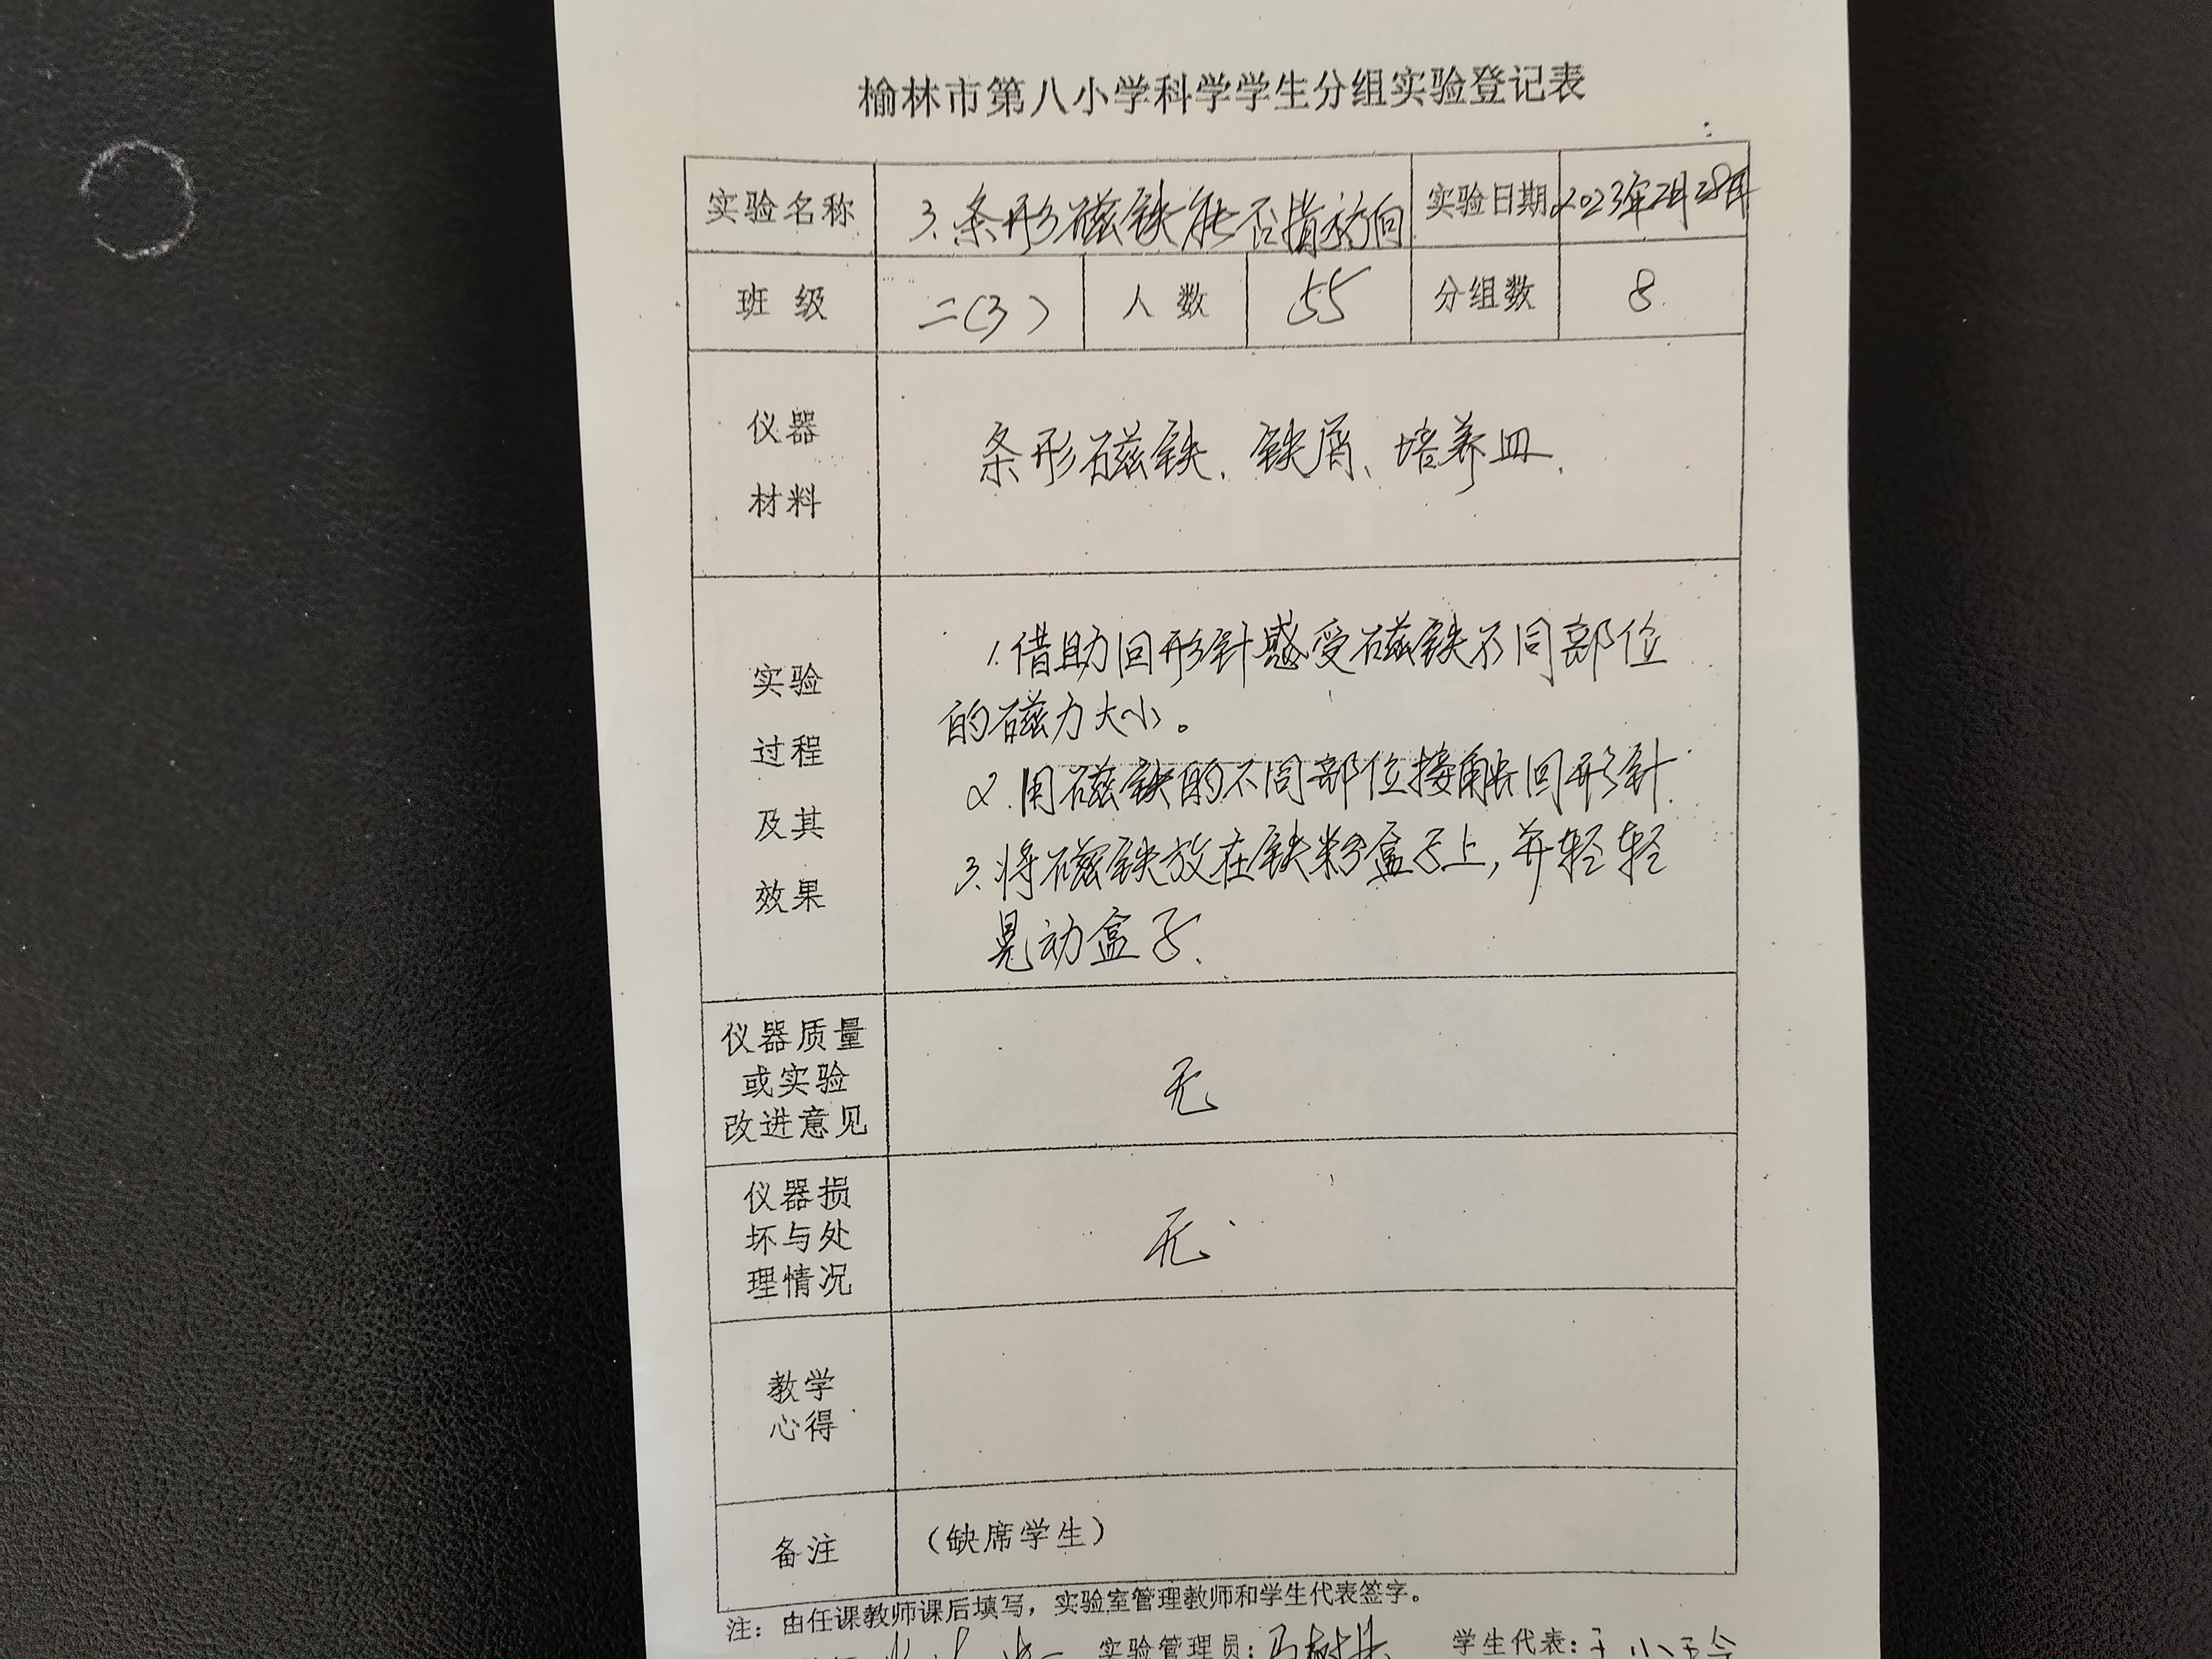 榆林市第八小学科学学生分组实验登记表
实验名称 3.条形磁铁能否指方向 实验日期 2023年2月28日
班 级 二(3) 人 数 55 分组数 8
仪器
材料
条形磁铁、铁屑、培养皿.
实验
过程
及其
效果
1.借助回形针感受磁铁不同部位
的磁力大小。
2.用磁铁的不同部位接触回形针.
3.将磁铁放在铁粉盒子上,并轻轻
晃动盒子.
仪器质量
或实验
改进意见
无
仪器损
坏与处
理情况
无
教学
心得
备注 (缺席学生)
注：由任课教师课后填写，实验室管理教师和学生代表签字。
实验管理员: 学生代表: